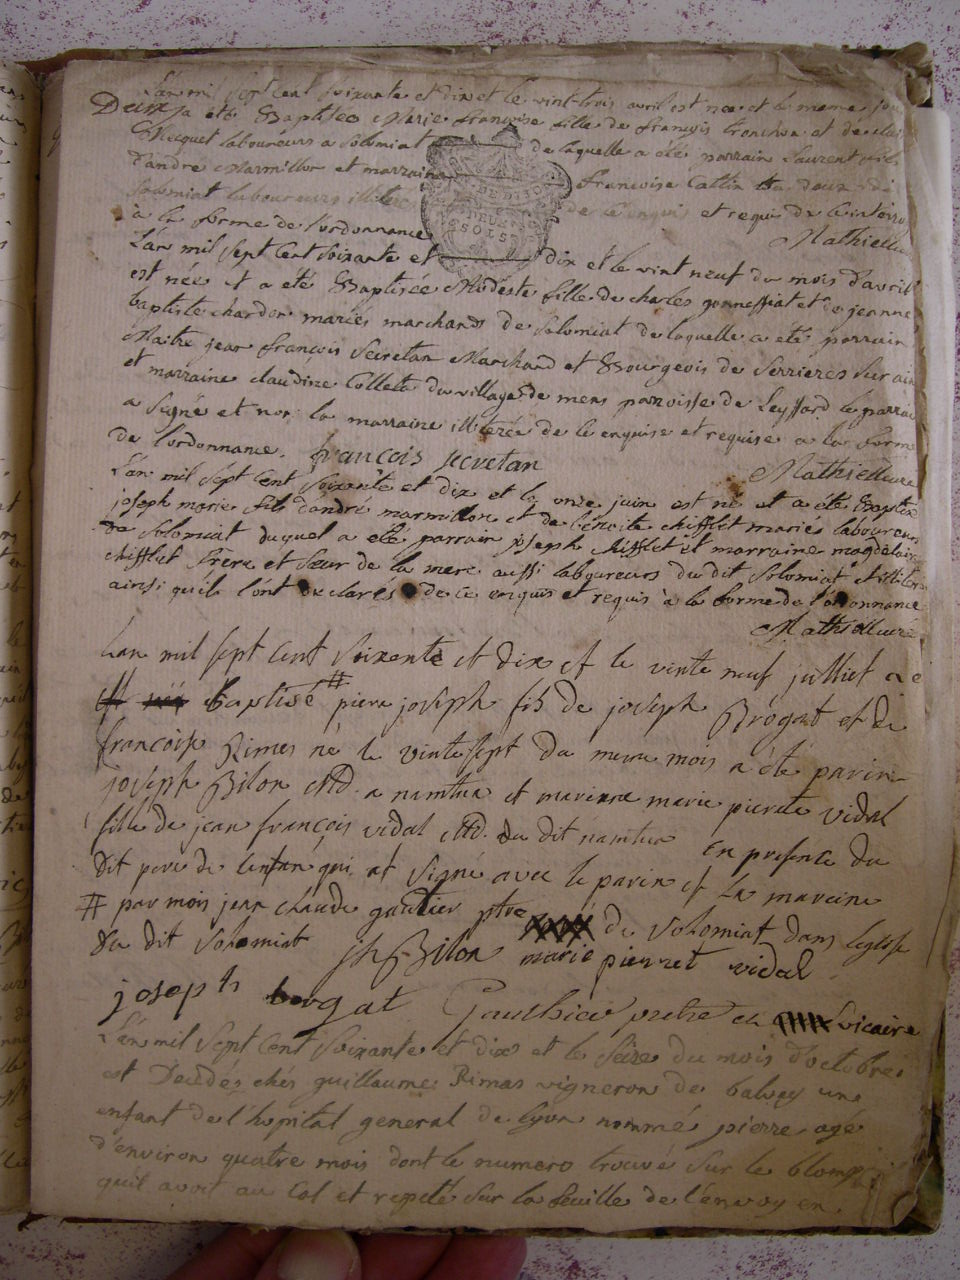 L'an mil sept cent soixante et dix et le vint trois avril est née et le meme jour
Deux a eté Baptisée Marie françoise fille de françois tronchon et de
Mecquet laboureurs a solomiat de laquelle a été parrain laurent fils
d'andre Marmillor et marraine francoise Cattin
solomiat laboureurs de ce enquis et requis de ce
à la forme de l'ordonnance Mathieu
DEUX SOLS
L'an mil sept cent soixante et dix et le vint neuf du mois d'avril
est née et a eté Baptisée Modeste fille de charles gonneffiat et de jeanne
baptiste chardon mariés marchands de solomiat de laquelle a eté parrain
Maitre jean françois Secretan Marchand et Bourgeois de Serrieres sur ain
et marraine claudine Collete du village de mens parroisse de Leyssard le parrain
a signé et non la marraine illiterée de ce enquise et requise a la forme
de l'ordonnance. françois secretan Mathieu curé
L'an mil sept cent soixante et dix et le onze juin est né et a eté Baptisé
joseph marie fils d'andré marmillon et de benoite chifflet mariés laboureurs
de solomiat duquel a eté parrain joseph chifflet et marraine magdelaine
chifflet frere et sœur de la mere aussi laboureurs du dit solomiat
ainsi qu'ils l'ont declarés de ce enquis et requis à la forme de l'ordonnance
Mathieu curé
Lan mil sept cent soixente et dix et le vente neuf julliet a e
Baptisé # piere joseph fils de joseph Brogat et de
francoise Rimes né le vintesept du meme mois a été parin
joseph Bilon Md. a nantua et mareinne marie pierete vidal
fille de jean françois vidal Md. du dit nantua En presence du
dit pere de lenfant qui at signé avec le parin et La mareine
# par mois jean claude gautier ptre de solomiat dans leglise
du dit solomiat jh Bilon marie pierret vidal
joseph brogat Gauthier pretre et vicaire
L'an mil sept cent soixante et dix et le seize du mois d'octobre
est Decedés chés guillaume Rimas vigneron de balvey une
enfant de l'hopital general de lyon nommé pierre agé
d'environ quatre mois dont le numero trouvé sur le blomp
quil avoit au Col et repeté sur la feuille de l'envoy en